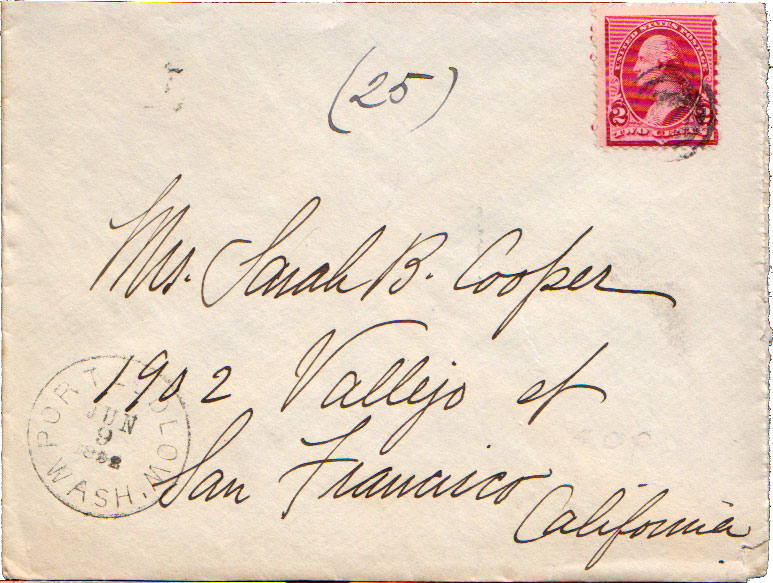 (25)
UNITED STATES POSTAGE
2 2
TWO CENTS
Mrs. Sarah B. Cooper
1902 Vallejo st
San Francisco
California
PORT
JUN
9
WASH.